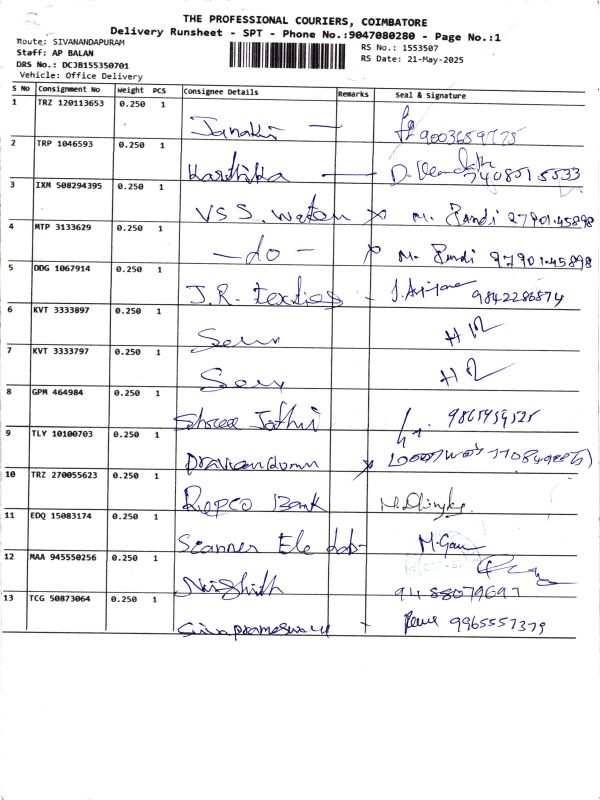 THE PROFESSIONAL COURIERS, COIMBATORE
Delivery Runsheet - SPT - Phone No.:9047080280 - Page No.:1
Route: SIVANANDAPURAM
Staff: AP BALAN
DRS No.: DCJB155350701
Vehicle: Office Delivery
RS No.: 1553507
RS Date: 21-May-2025
S No Consignment No Weight PCS Consignee Details Remarks Seal & Signature
1 TRZ 120113653 0.250 1
Janaki —
2 TRP 1046593 0.250 1
Karthika — D.
3 IXM 508294395 0.250 1
VSS. Watch x M. Pandi 97901.45898
4 MTP 3133629 0.250 1
— do — x M. Pandi 97901.45898
5 DDG 1067914 0.250 1
J.R. textiles - 9842286874
6 KVT 3333897 0.250 1
7 KVT 3333797 0.250 1
8 GPM 464984 0.250 1
Shree Jothi
9 TLY 10100703 0.250 1
10 TRZ 270055623 0.250 1
Repco Bank
11 EDQ 15083174 0.250 1
Scanner Ele
12 MAA 945550256 0.250 1
13 TCG 50873064 0.250 1
9965557379